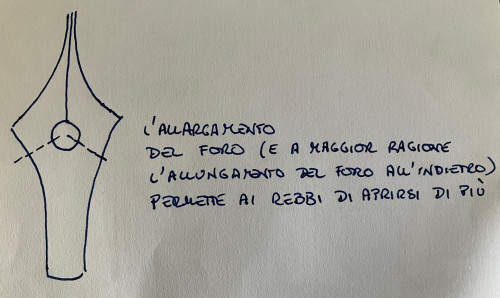 L'ALLARGAMENTO
DEL FORO (E A MAGGIOR RAGIONE
L'ALLUNGAMENTO DEL FORO ALL'INDIETRO)
PERMETTE AI REBBI DI APRIRSI DI PIÙ